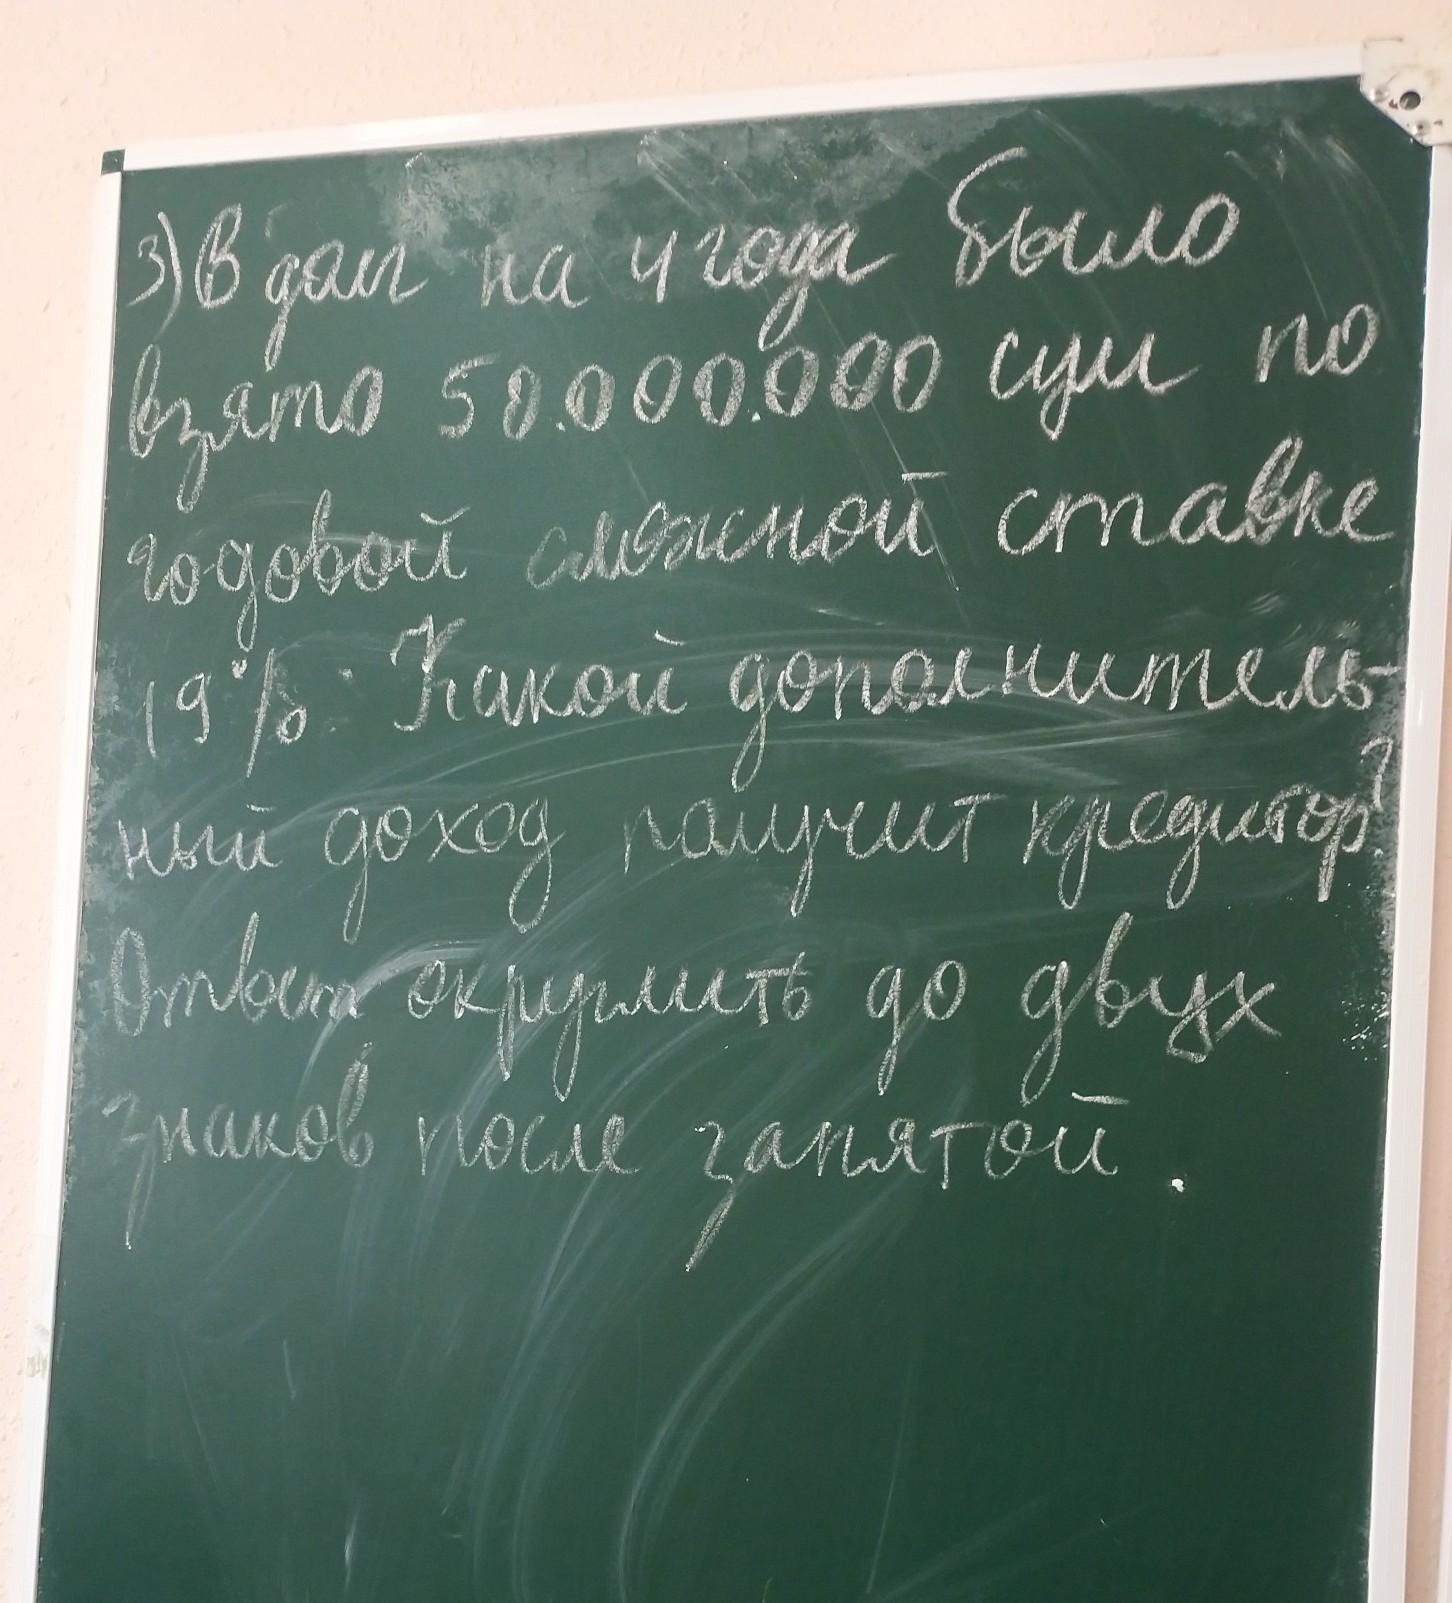 3) В долг на 4 года было
взято 50.000.000 сум по
годовой сложной ставке
19%. Какой дополнитель-
ный доход получит кредитор?
Ответ округлить до двух
знаков после запятой.